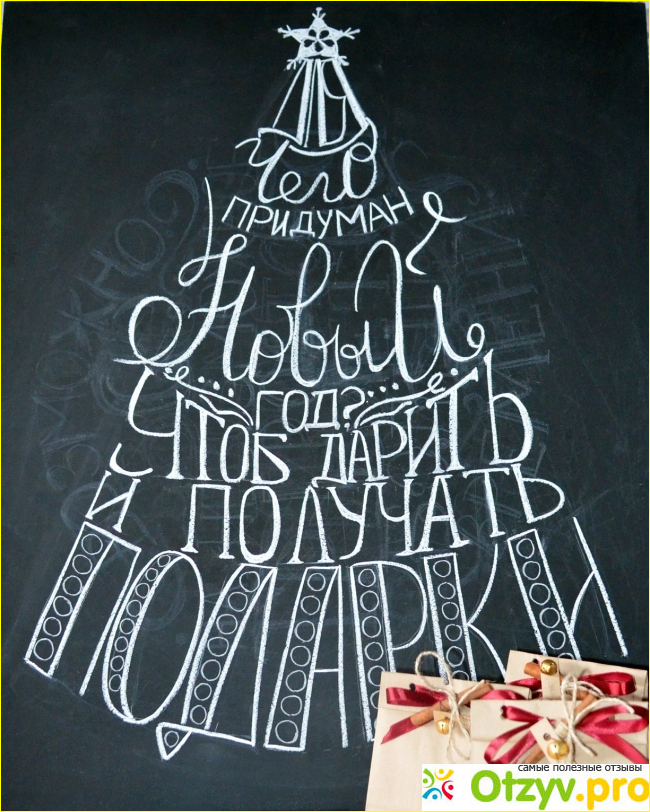 ДЛЯ
Чего
ПРИДУМАН
Новый
ГОД?
ЧТОБ ДАРИТЬ
И ПОЛУЧАТЬ
ПОДАРКИ
самые полезные отзывы
Otzyv.pro